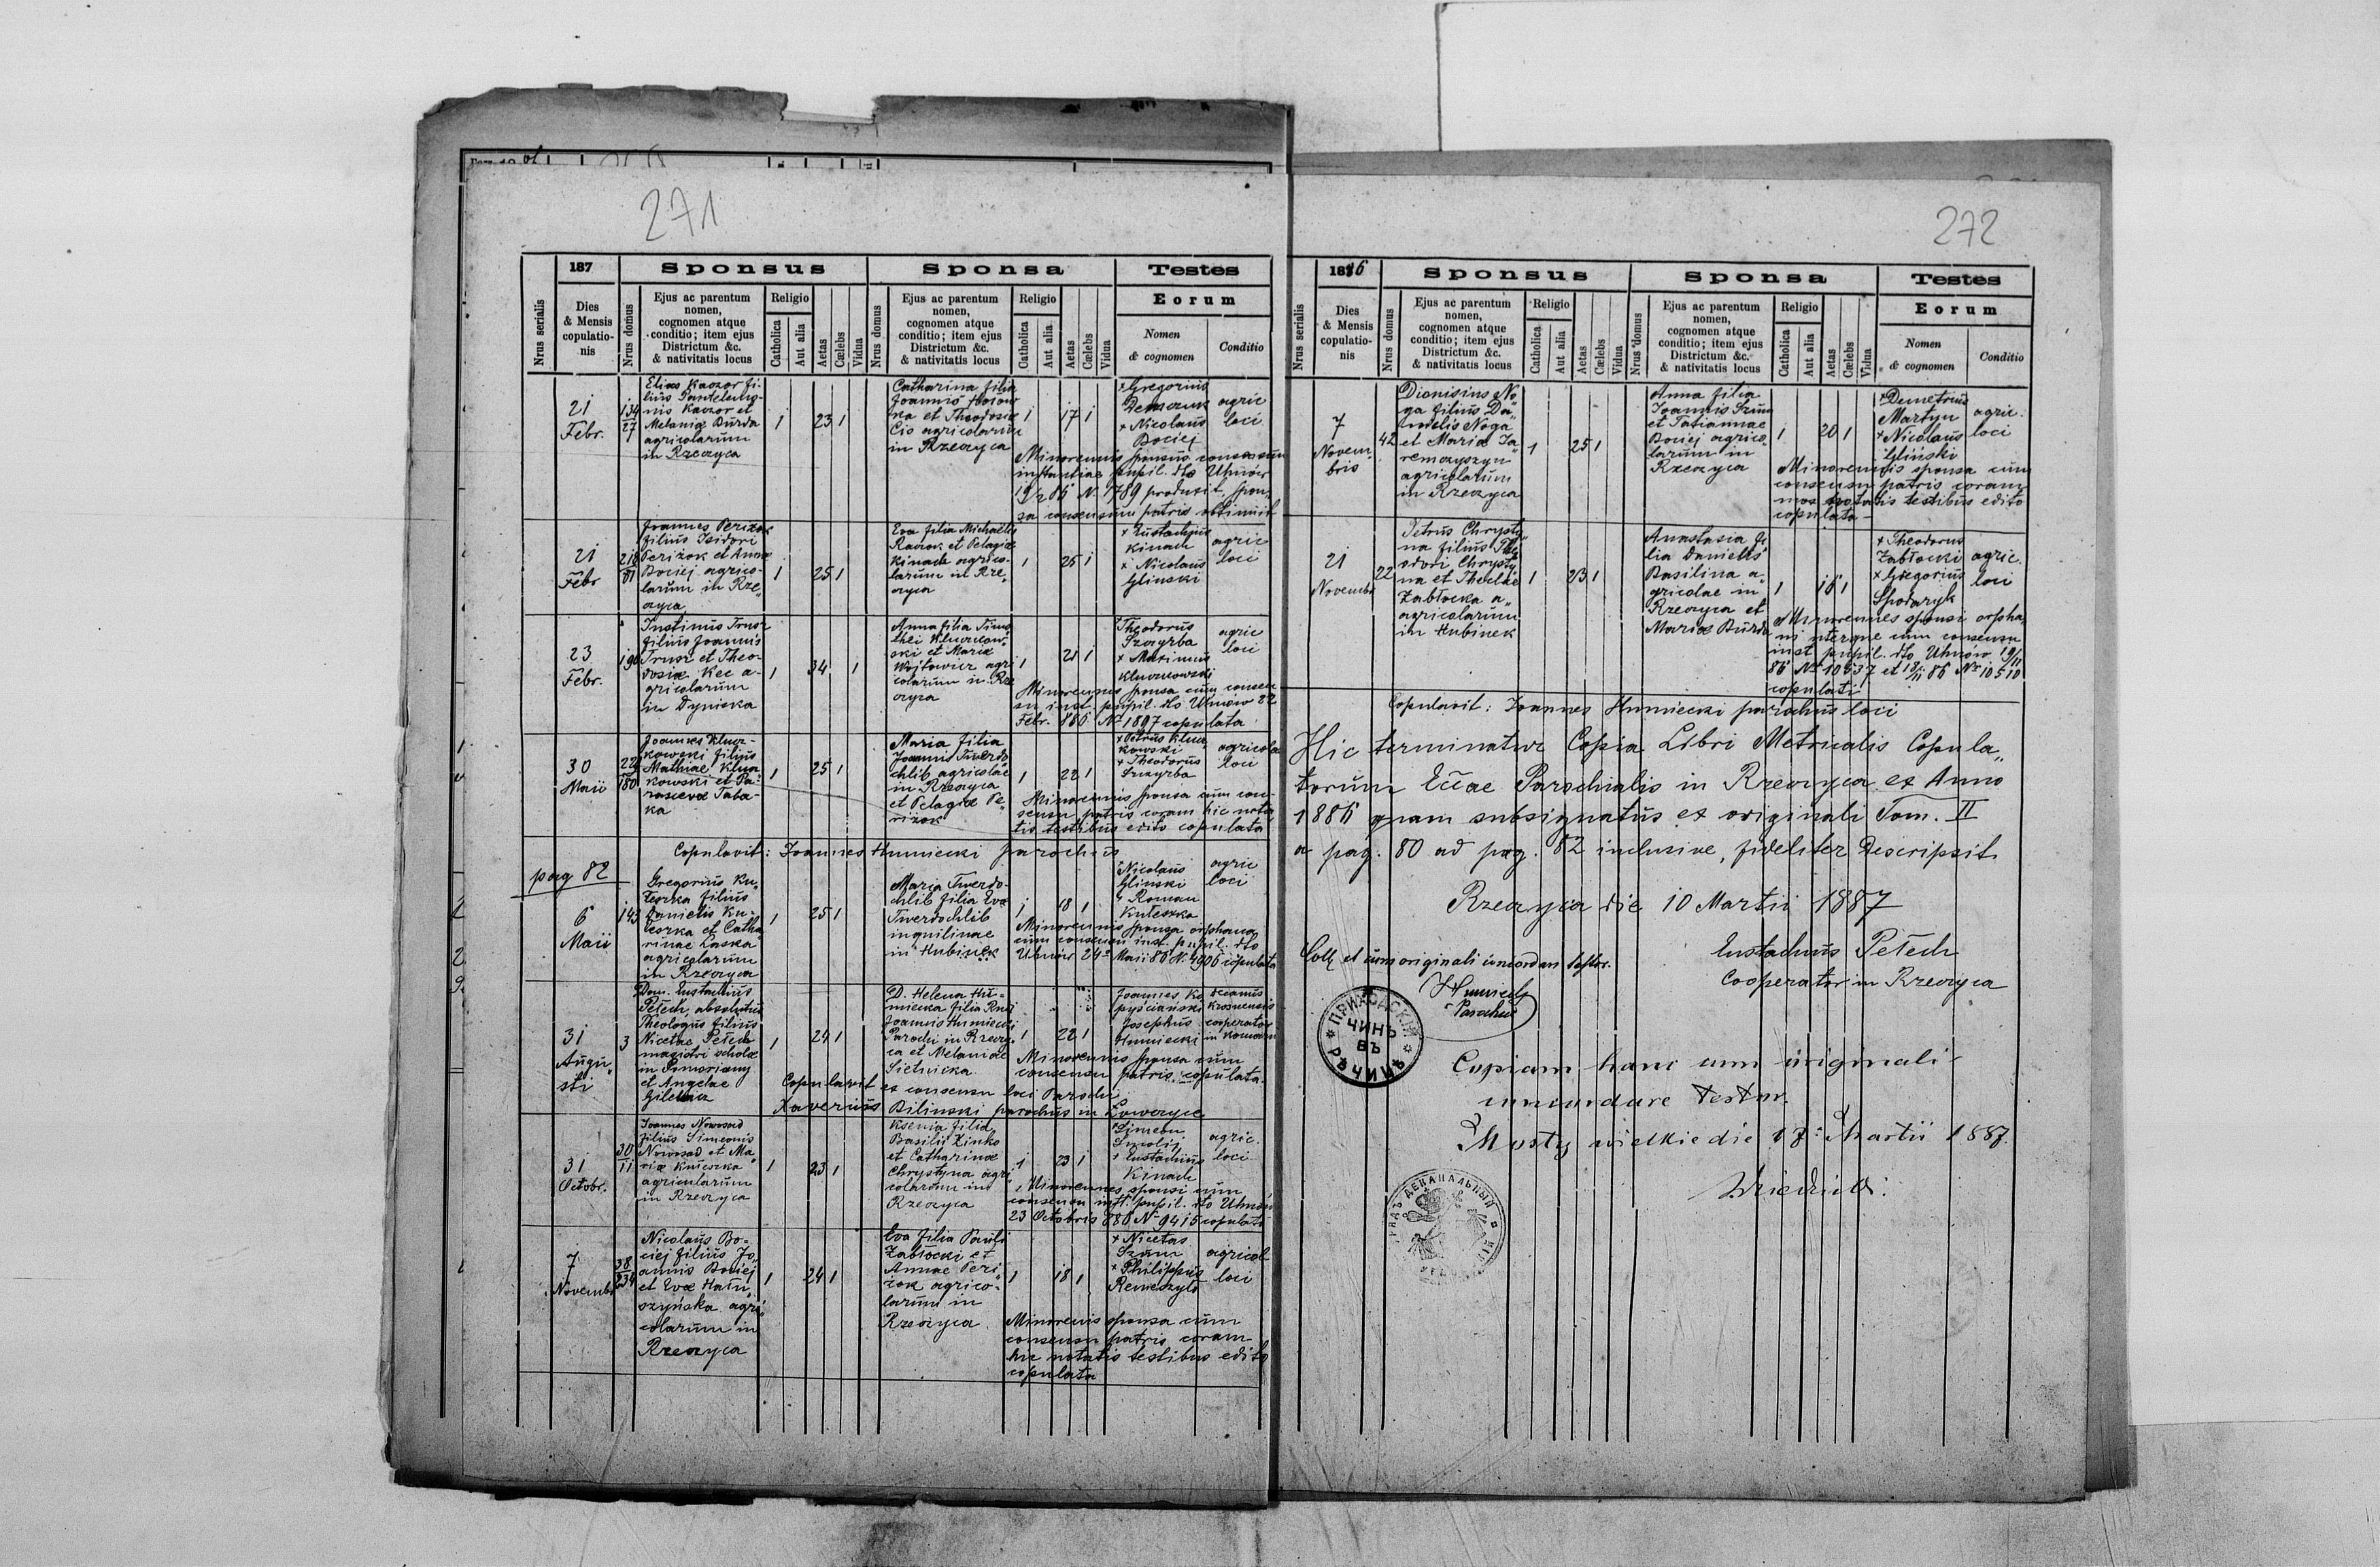 271
187
Sponsus
Sponsa
Testes
Nrus serialis
Dies
& Mensis
copulatio-
nis
Nrus domus
Ejus ac parentum
nomen,
cognomen atque
conditio; item ejus
Districtum &c.
& nativitatis locus
Religio
Catholica
Aut alia
Aetas
Cælebs
Vidua
Nrus domus
Ejus ac parentum
nomen,
cognomen atque
conditio; item ejus
Districtum &c.
& nativitatis locus
Religio
Catholica
Aut alia
Aetas
Cælebs
Vidua
Eorum
Nomen
& cognomen
Conditio
21
Febr.
134
27
Elias Kaczor fi-
lius Panteleimo-
nis Kaczor et
Melaniæ Burda
agricolarum
in Rzeczyca
1 23 1
Catharina filia
Joannis
et Theodosiæ
Cis agricolarum
in Rzeczyca
1 17 1
+ Gregorius
Demczuk
+ Nicolaus
Bociej
agric
loci
Minorennis sponsus consensum
instantiae pupil. dto Uhnów
19/2 86 N. 1789 produxit, spon-
sa consensum patris obtinuit
21
Febr
218
81
Joannes Perizok
filius Isidori
Perizok et Annæ
Bociej agrico-
larum in Rze„
czyca
1 25 1
Eva filia Michaelis
Raczok et Pelagiæ
Kinach agrico-
larum in Rze„
czyca
1 25 1
+ Eustachius
Kinach
+ Nicolaus
Glinski
agric
loci
23
Febr.
190
Justinus Trusz
filius Joannis
Trusz et Theo-
dosiæ Kec a-
gricolarum
in Dyniska
1 34 1
Anna filia Timo
thei Kluczkow-
ski et Mariæ
Wojtowicz agri
colarum in Rze
czyca
1 21 1
+ Theodorus
Szczyrba
+ Maximus
Kluczkowski
agric
loci
Minorennis sponsa cum consen
su inst. pupil. dto Uhnów 22
Febr. 886 N 1897 copulata
30
Maii
22
180
Joannes Klucz-
kowski filius
Mathiae Klucz
kowski et Pa-
rascevæ Taba-
ka
1 25 1
Maria filia
Joannis Twerdo
chlib agricolæ
in Rzeczyca
et Pelagiæ Pe„
rizok
1 22 1
+ Petrus Klucz
kowski
+ Theodorus
Szczyrba
agricola
loci
Minorennis sponsa cum con-
sensu patris coram hic nota
tis testibus edito copulata
Copulavit: Joannes Humiecki parochus
pag 82
6
Maii
143
Gregorius Ku„
leszka filius
Danielis Ku-
leszka et Catha
rinae Laska
agricolarum
in Rzeczyca
1 25 1
Maria Twerdo-
chlib filia Evæ
Twerdochlib
inquilinae
in Hubinek
1 18 1
Nicolaus
Glinski
+ Roman
Kuleszka
agric
loci
Minorennis sponsa orphana
cum consensu inst. pupil. dto
Uhnów 24 Maii 86 N. 4906 copulata
31
Augu„
sti
3
Dom. Eustachius
Petech, absolutus
Theologus filius
Nicetae Petech
magistri scholæ
et Angelae
1 24 1
D. Helena Hu-
miecka filia Rndi
Joannis Humiecki
Parochi in Rzeczy-
ca et Melaniae
Sietnicka
1 22 1
Joannes Ko
pyściański
Josephus
Humiecki
decanus
cooperator
Minorennis sponsa cum
consensu patris copulata.
Copulavit ex consensu loci Parochi
Xaverius Bilinski parochus in Lowczyce
31
Octobr.
30
11
Joannes Nowosad
filius Simeonis
Nowosad et Ma„
riæ Kniczka
agricolarum
in Rzeczyca
1 23 1
Ksenia filia
Basilii Zinko
et Catharinæ
Chrystyna agri
colarum in
Rzeczyca
1 23 1
+ Simeon
Smolij
+ Eustachius
Kinach
agric.
loci
Minorennes sponsi cum
consensu inst. pupil. dto Uhnów
23 Octobris 886 N 9415 copulati
7
Novembr
38
234
Nicolaus Bo-
ciej filius Jo„
annis Bociej
et Evæ Hału„
szyńska agri„
colarum in
Rzeczyca
1 24 1
Eva filia Pauli
Zabłocki et
Annae Peri„
zok agrico-
larum in
Rzeczyca
1 18 1
+ Nicetas
Szum
+ Philippus
Remeszylo
agricol
loci
Minorennis sponsa cum
consensu patris coram
hic notatis testibus edito
copulata
272
1886
Sponsus
Sponsa
Testes
Nrus serialis
Dies
& Mensis
copulatio-
nis
Nrus domus
Ejus ac parentum
nomen,
cognomen atque
conditio; item ejus
Districtum &c.
& nativitatis locus
Religio
Catholica
Aut alia
Aetas
Cælebs
Vidua
Nrus domus
Ejus ac parentum
nomen,
cognomen atque
conditio; item ejus
Districtum &c.
& nativitatis locus
Religio
Catholica
Aut alia
Aetas
Cælebs
Vidua
Eorum
Nomen
& cognomen
Conditio
7
Novem-
bris
42
Dionisius No„
ga filius Da„
nielis Noga
et Mariæ Ja„
remczyszyn
agricolarum
in Rzeczyca
1 25 1
Anna filia
Joannis Szum
et Tatiannae
Bociej agrico„
larum in
Rzeczyca
1 20 1
+ Demetrius
Martyn
+ Nicolaus
Gliński
agric.
loci
Minorennis sponsa cum
consensu patris coram
mox notatis testibus edito
copulata -
21
Novembr
22
Petrus Chrysty„
na filius The„
odori Chrysty„
na et Theclae
Zabłocka a„
agricolarum
in Hubinek
1 23 1
Anastasia fi
lia Danielis
Basilina a„
gricolae in
Rzeczyca et
Mariæ Burda
1 16 1
+ Theodorus
Zabłocki
+ Gregorius
Spodaryk
agric.
loci
Minorennes sponsi orpha„
ni uterque cum consensu
inst pupil. dto Uhnów 19/11
86 N 10537 et 18/11 86 Nr 10510
copulati
Copulavit: Joannes Humiecki parochus loci
Hic terminatur Copia Libri Metricalis Copula„
torum Eccae Parochialis in Rzeczyca ex Anno
1886 quam subsignatus ex originali Tom. II
a pag. 80 ad pag. 82 inclusive, fideliter descripsit.
Rzeczyca die 10 Martii 1887
Eustachius Petech
Cooperator in Rzeczyca
Coll et cum originali concordare testor.
Humiecki
Parochus
ПРИХОДСКІЙ
ЧИНЪ
ВЪ
Copiam hanc cum originali
concordare testor.
Mosty wielkie die 17 Martii 1887.
ДЕКАНАЛЬНЫЙ